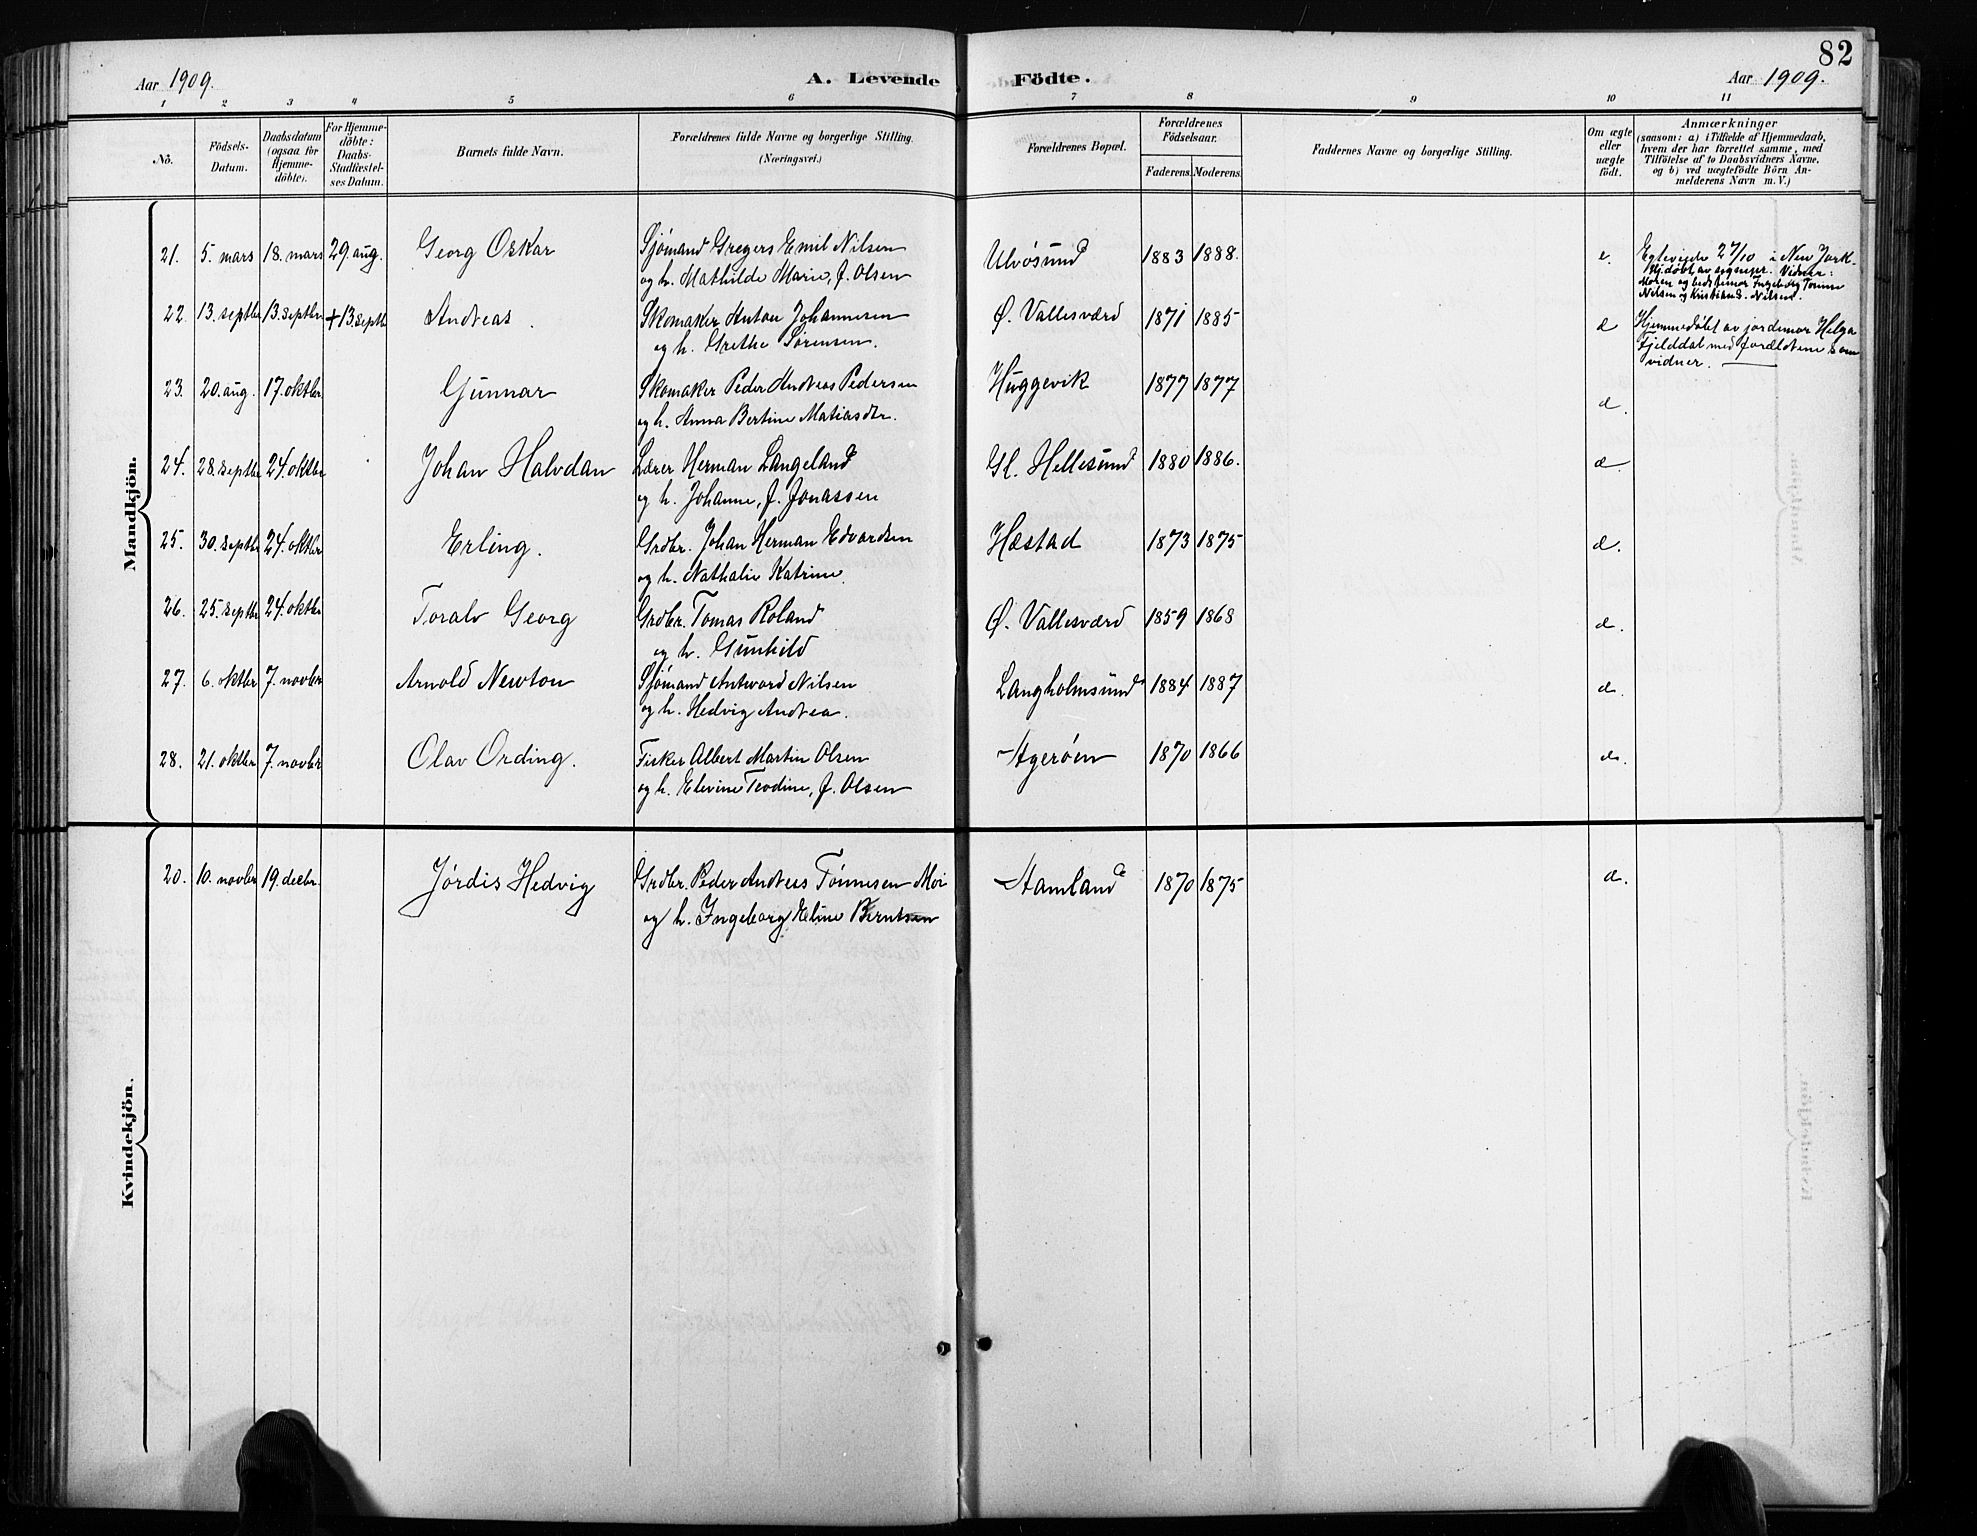 82
Aar 1909.
A. Levende Födte.
Aar 1909.
1 2 3 4 5 6 7 8 9 10 11
No.
Födsels-Datum.
Daabsdatum (ogsaa for Hjemme-döbte).
For Hjemme-döbte: Daabs-Stadfæstel-ses Datum.
Barnets fulde Navn.
Forældrenes fulde Navne og borgerlige Stilling. (Næringsvei.)
Forældrenes Bopæl.
Forældrenes Födselsaar.
Faderens. Moderens.
Faddernes Navne og borgerlige Stilling.
Om ægte eller uægte födt.
Anmærkninger
(saasom: a) i Tilfælde af Hjemmedaab,
hvem der har forrettet samme, med
Tilföielse af to Daabsvidners Navne,
og b) ved uægtefödte Börn An-
melderens Navn m. V.)
Mandkjön.
21. 5. mars 18. mars 29. aug. Georg Oskar Sjömand Gregers Emil Nilsen Ulvösund 1883 1888. e.
og h. Mathilde Marie, f. Olsen
Egteviede 27/10 i New Jork
Hjdöbt av
Vidner:
Moren og bedstemor Ingeborg Tomine
Nilsen og Kristiane Nilsen.
22. 13. septbr 13. septbr + 13. septbr Andreas. Skomaker Anton Johannesen Ø. Vallesværd 1871 1885 d
og h. Grethe Sørensen.
Hjemmedöbt av jordemor Helga
Fjelddal med forældrene som
vidner.
23. 20. aug. 17. oktbr Gunnar Skomaker Peder Andreas Pedersen Huggevik 1877 1877 d.
og h. Anna Bertine Matiasdtr.
24. 28. septbr 24. oktbr Johan Halvdan Lærer Herman Langeland Gl. Hellesund 1880 1886. d
og h. Johanne, f. Jonassen
25. 30. septbr 24. oktbr Erling. Grdbr. Johan Herman Edvardsen Hæstad 1873 1875 d.
og h. Nathalie Katrine.
26. 25. septbr 24. oktbr Toralv Georg Grdbr. Tomas Roland Ø. Vallesværd 1859 1868 d.
og h. Gunhild
27. 6. oktbr 7. novbr Arnold Newton Sjömand Antword Nilsen Langholmsund 1884 1887 d.
og h. Hedvig Andrea.
28. 21. oktbr 7. novbr Olav Ording. Fisker Albert Martin Olsen Agerøen 1870 1866 d.
og h. Elevine Teodine, f. Olsen
Kvindekjön.
20. 10. novbr 19. decbr. Jórdis Hedvig Grdbr. Peder Andreas Tönnesen Moi Aamland 1870 1875 d.
og h. Ingeborg Eline Berntsen